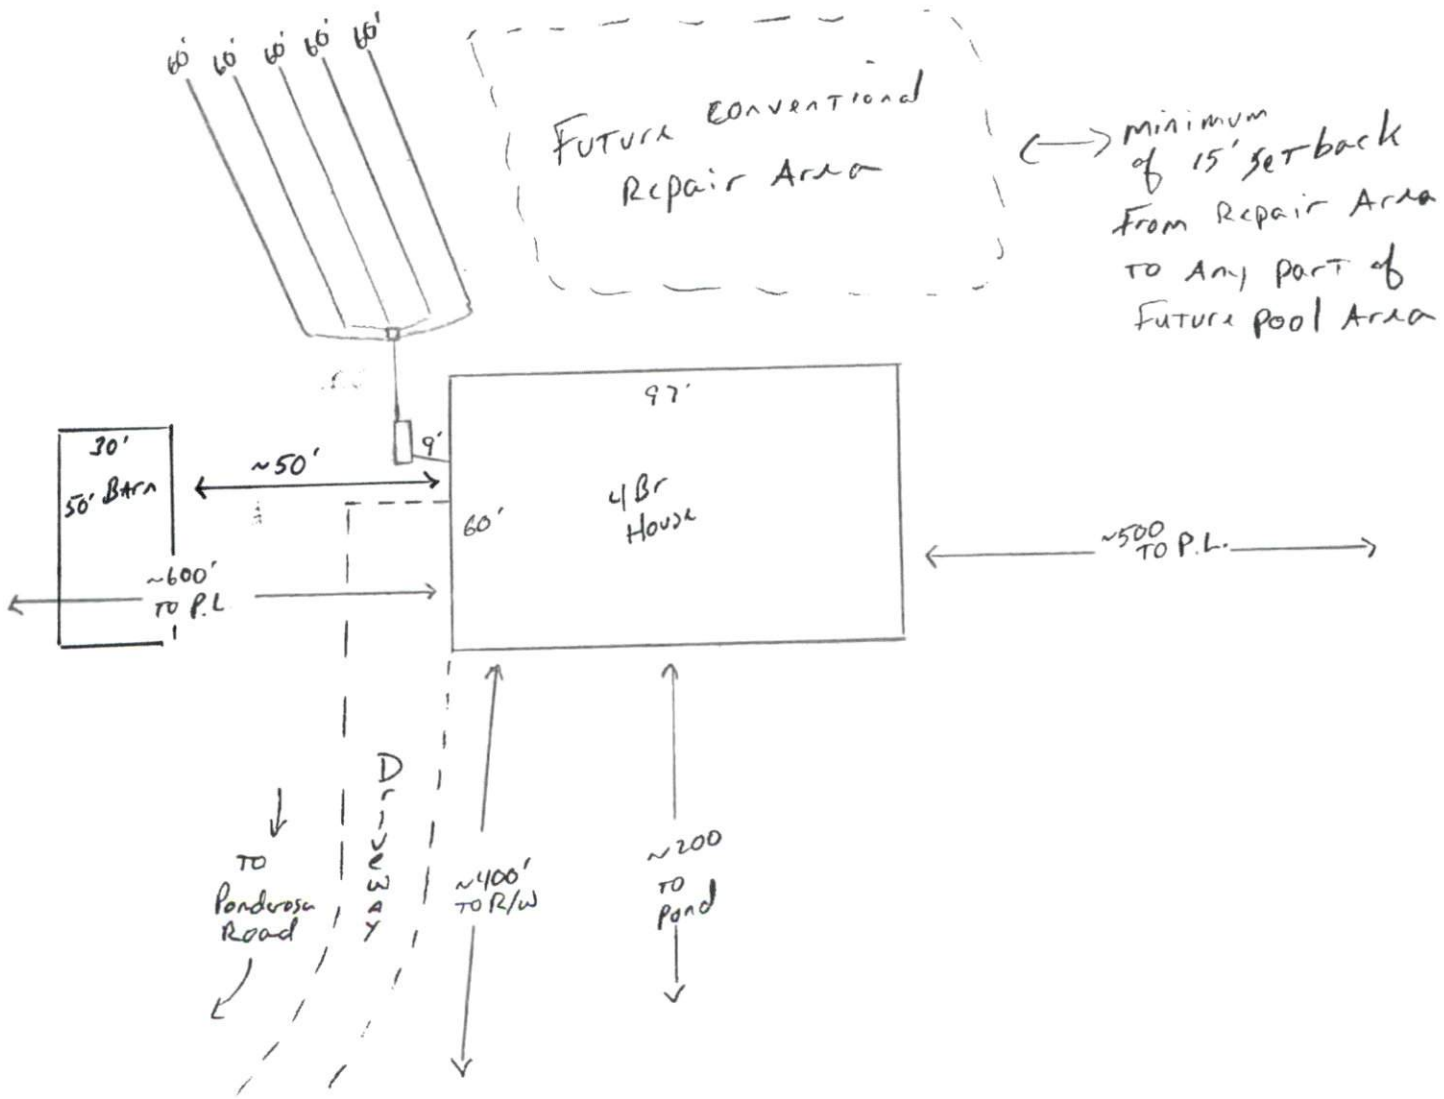 60' 60' 60' 60' 60'
Future Conventional
Repair Area
minimum
of 15' setback
From Repair Area
To Any part of
Future pool Area
97'
30'
50' Barn
~50'
9'
60'
4 Br
House
~500
TO P.L.
~600'
TO P.L
Driveway
TO
Ponderosa
Road
~400'
TO R/W
~200
TO
pond